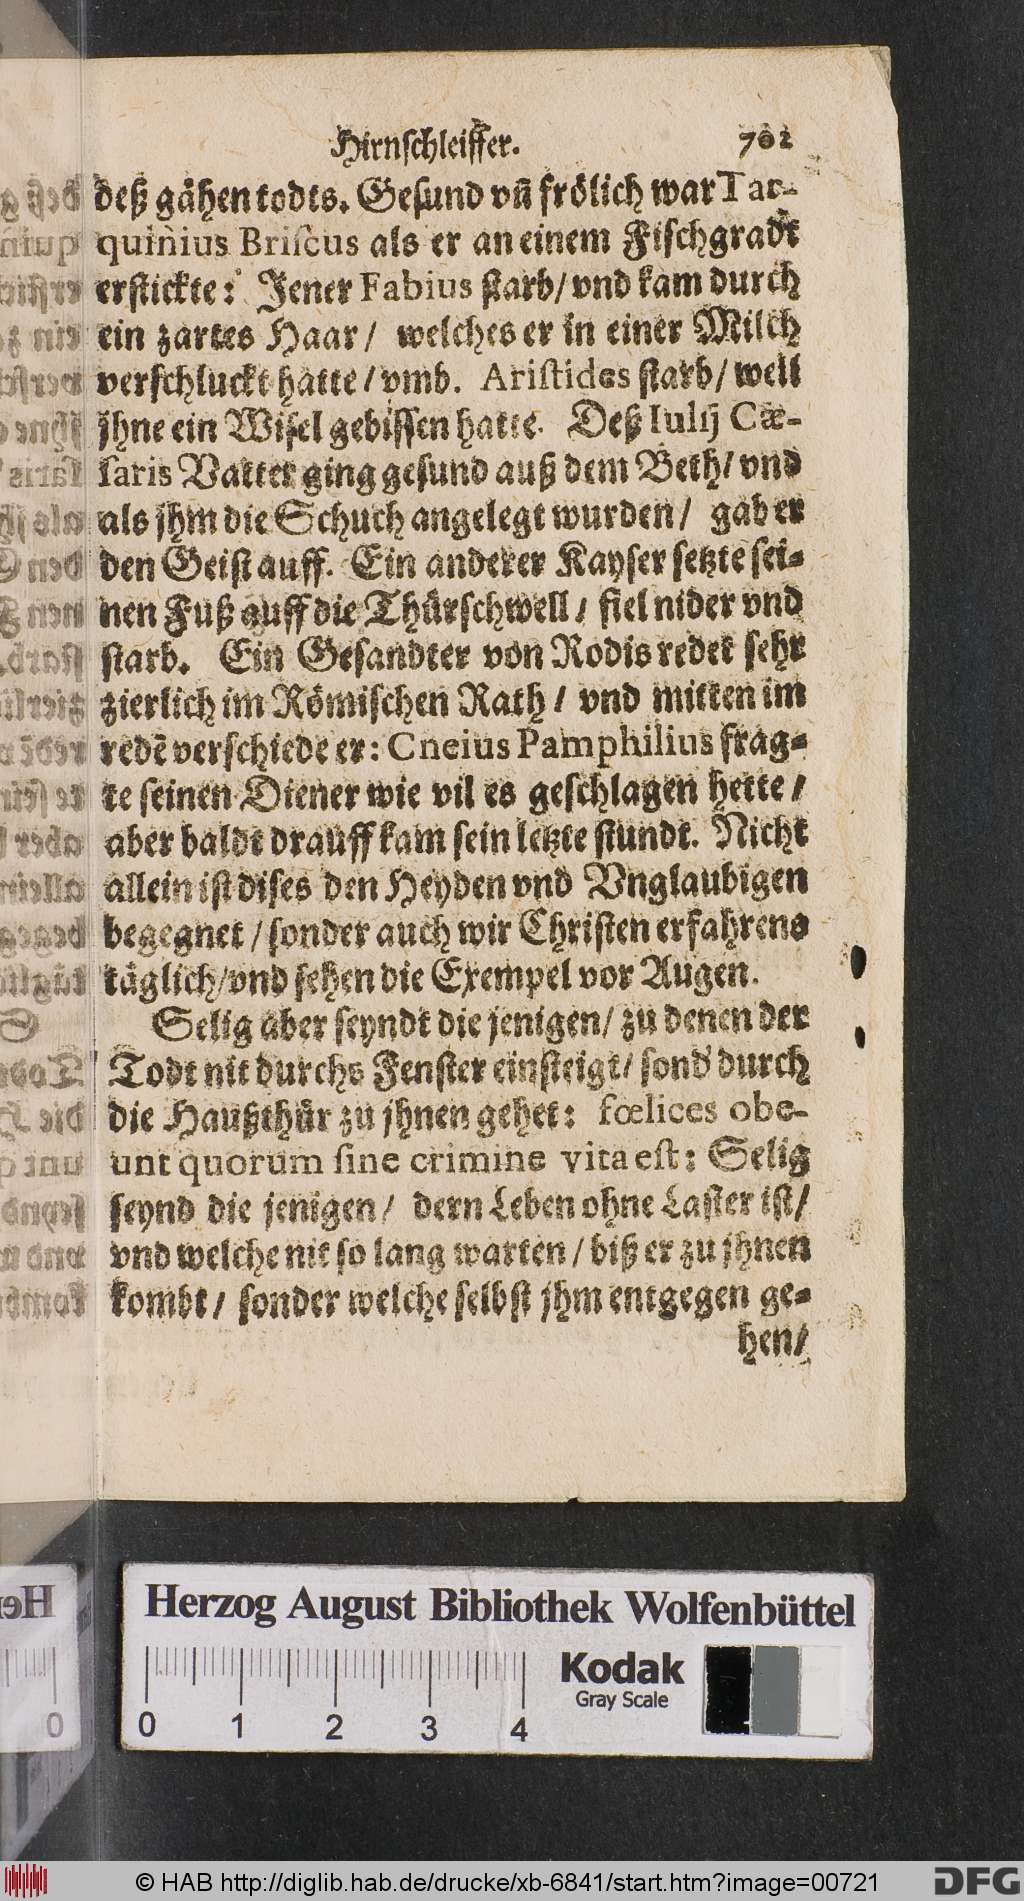 Hirnschleiffer. 701
deß gåhen todts. Gesund vn̄ frölich war Tar-
quinius Briſcus als er an einem Fischgradt
erstickte: Jener Fabius starb/ vnd kam durch
ein zartes Haar/ welches er in einer Milch
verschluckt hatte/ vmb. Ariſtides starb/ weil
jhne ein Wisel gebissen hatte. Deß Iulij Cæ-
ſaris Vatter ging gesund auß dem Beth/ vnd
als jhm die Schuch angelegt wurden/ gab er
den Geist auff. Ein anderer Kayser setzte sei-
nen Fuß auff die Thürschwell/ fiel nider vnd
starb. Ein Gesandter von Rodis redet sehr
zierlich im Römischen Rath/ vnd mitten im
redē verschiede er: Cneius Pamphilius frag-
te seinen Diener wie vil es geschlagen hette/
aber baldt drauff kam sein letzte stundt. Nicht
allein ist dises den Heyden vnd Vnglaubigen
begegnet/ sonder auch wir Christen erfahrens
täglich/ vnd sehen die Exempel vor Augen.
Selig aber seyndt die jenigen/ zu denen der
Todt nit durchs Fenster einsteigt/ sond' durch
die Haußthür zu jhnen gehet: fœlices obe-
unt quorum ſine crimine vita eſt: Selig
seynd die jenigen/ dern Leben ohne Laster ist/
vnd welche nit so lang warten/ biß er zu jhnen
kombt/ sonder welche selbst jhm entgegen ge-
hen/
Herzog August Bibliothek Wolfenbüttel
Kodak
Gray Scale
0 1 2 3 4
© HAB http://diglib.hab.de/drucke/xb-6841/start.htm?image=00721
DFG